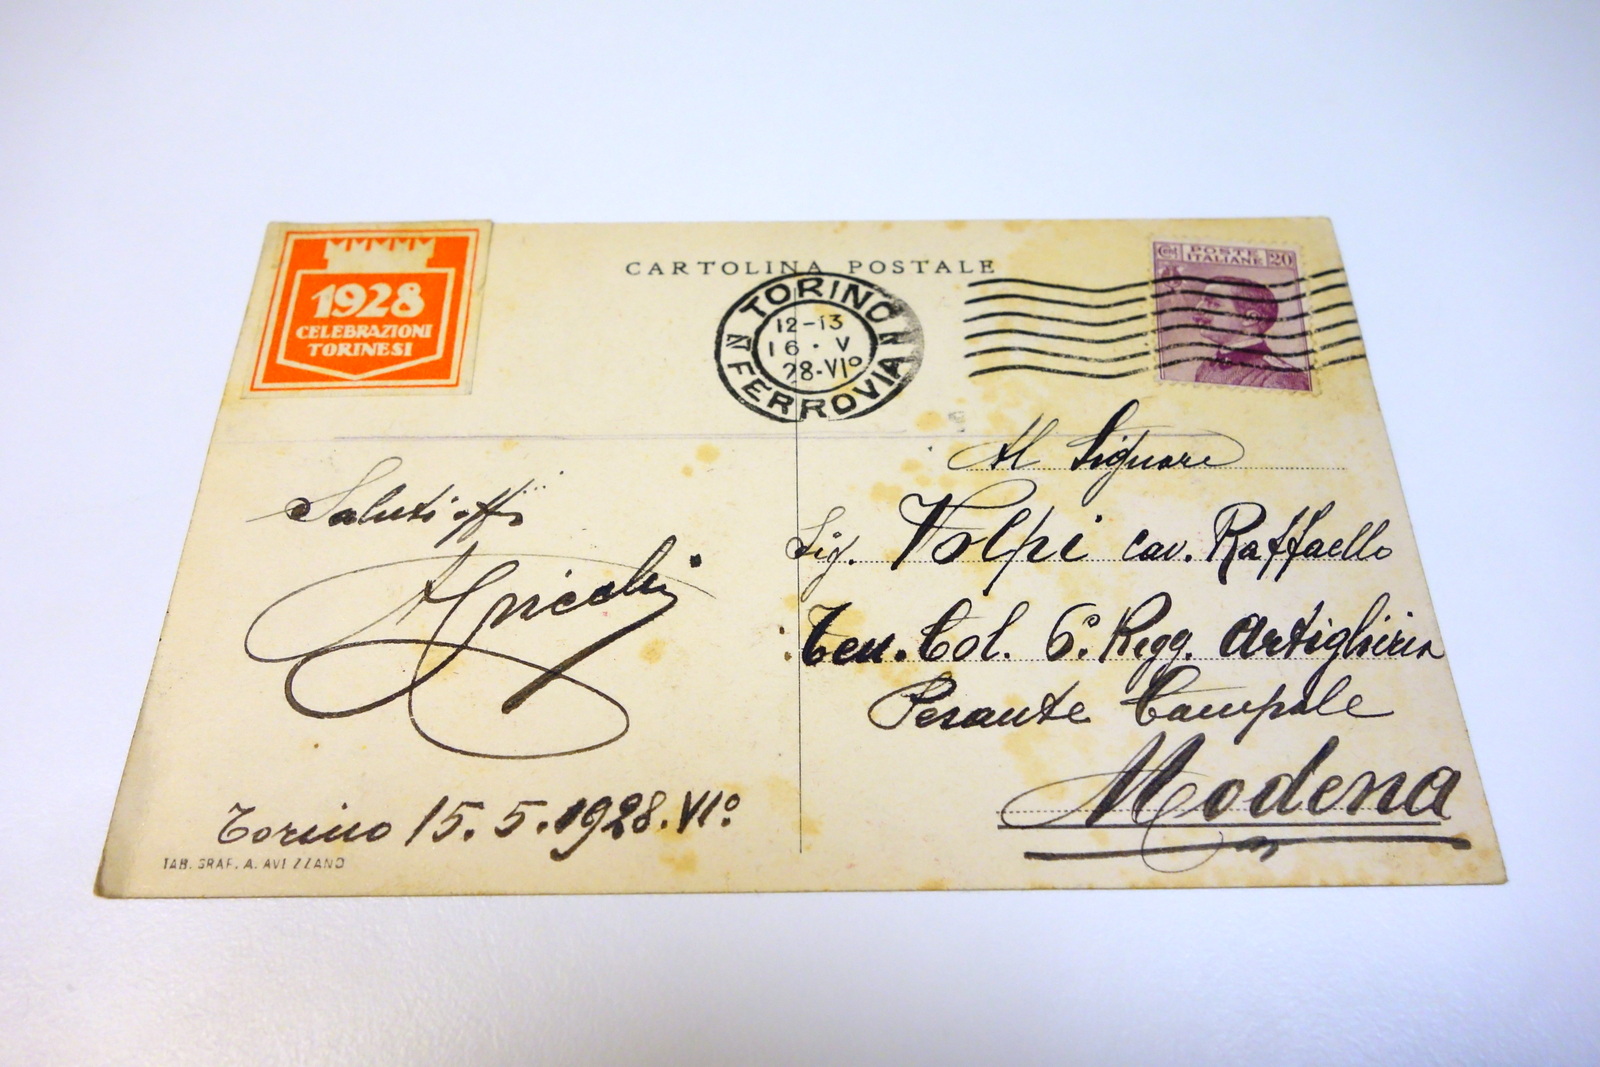 1928
CELEBRAZIONI
TORINESI
CARTOLINA POSTALE
TORINO
12-13
16 · V
28-VIº
FERROVIA
Cent POSTE 20
ITALIANE
Al Signore
Sig. Volpi cav. Raffaello
Ten. Col. 6º Regg. Artiglieria
Pesante Campale
Modena
Saluti aff.
Torino 15.5.1928.VIº
TAB. GRAF. A. AVEZZANO